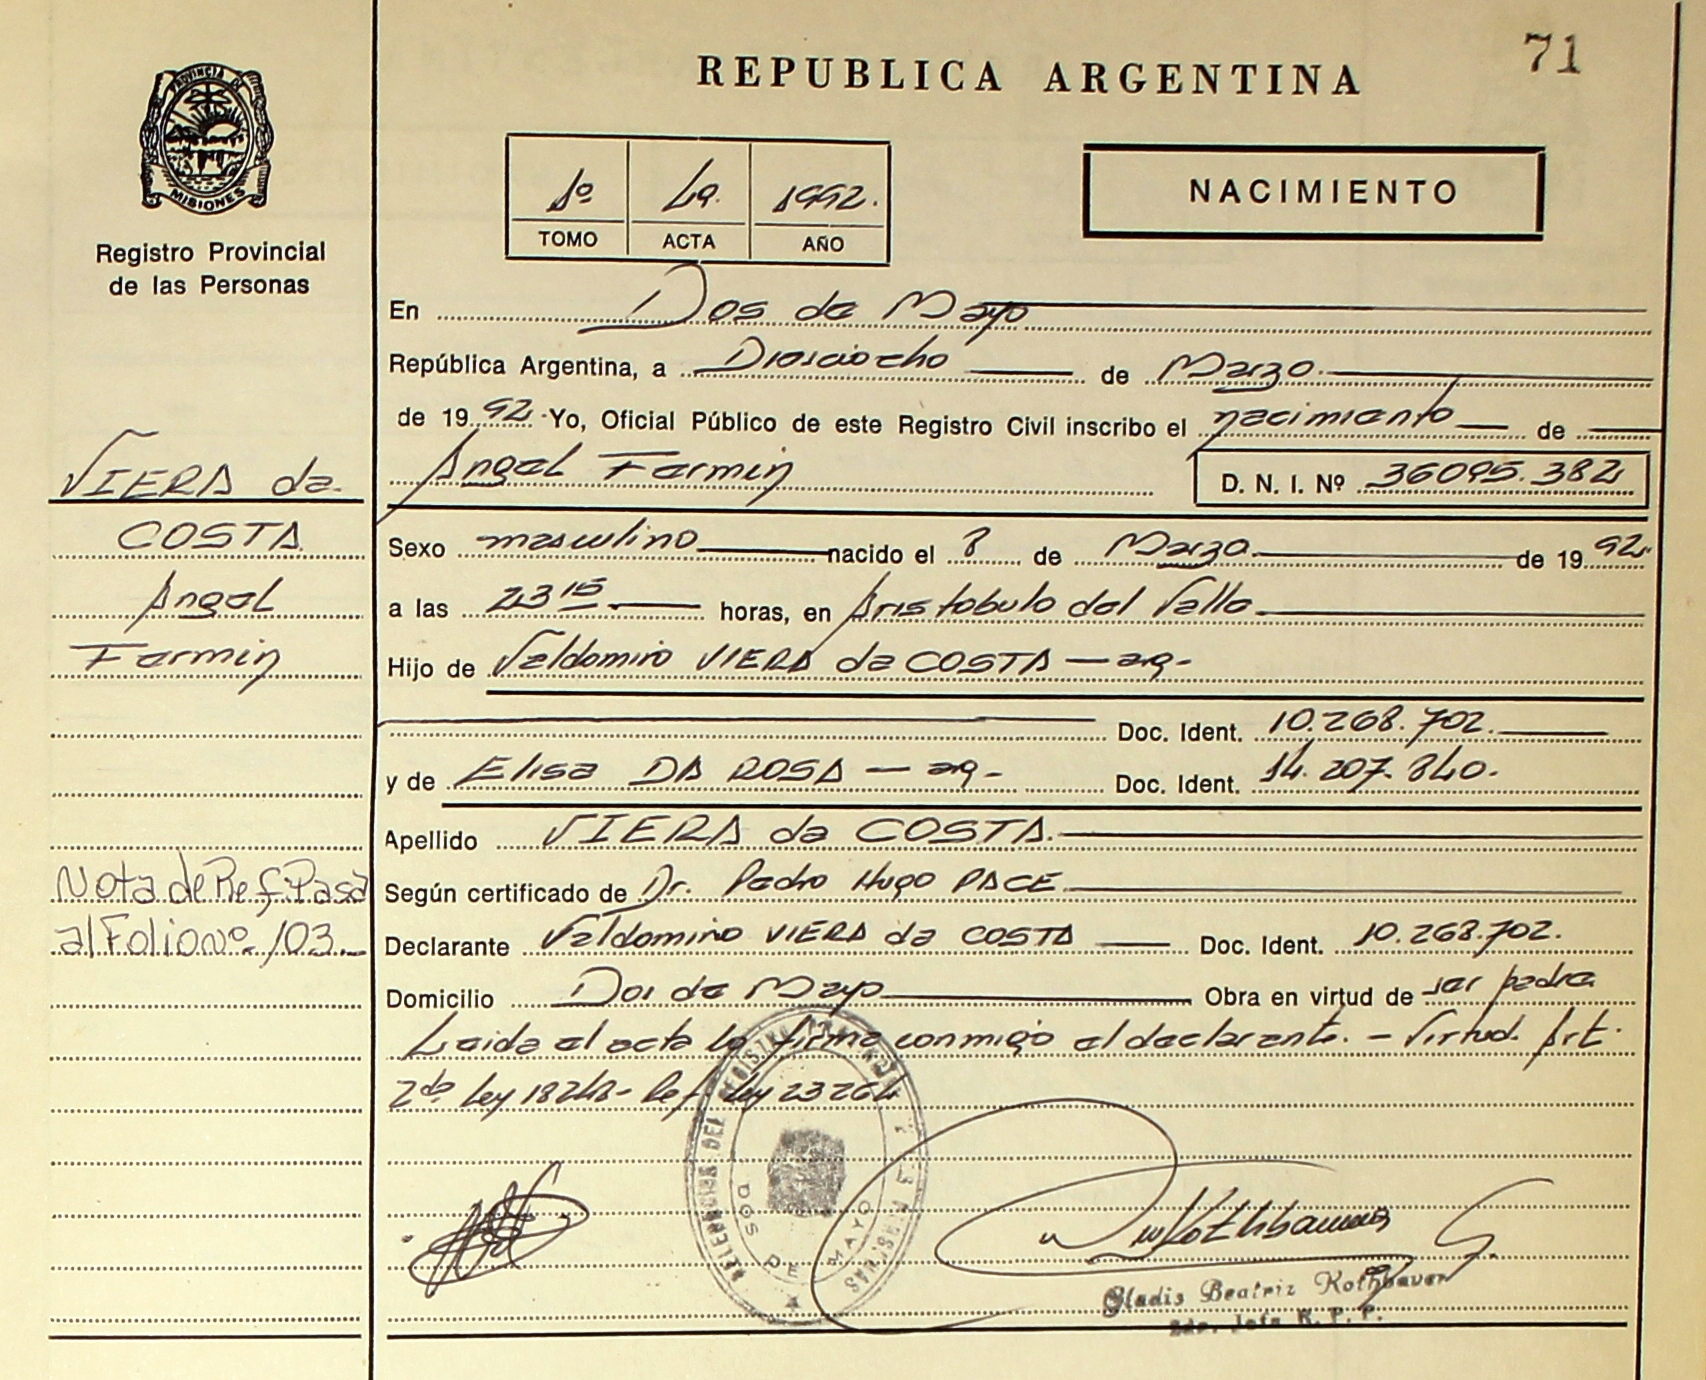 71
REPUBLICA ARGENTINA
PROVINCIA DE
MISIONES
Registro Provincial
de las Personas
1º 1992.
TOMO ACTA AÑO
NACIMIENTO
En Dos de Mayo
República Argentina, a Diesciocho de Marzo.
de 1992 Yo, Oficial Público de este Registro Civil inscribo el nacimiento de
Angel Fermin D. N. I. Nº 36095.382
VIERA da
COSTA
Angel
Fermin
Sexo masculino nacido el 8 de Marzo de 1992
a las 23 15 horas, en Aristobulo del Valle
Hijo de Valdomiro VIERA da COSTA - arg-
Doc. Ident. 10.268.702.
y de Elisa DA ROSA - arg- Doc. Ident. 14.207.840.
Apellido VIERA da COSTA
Nota de Ref. Pasa
al Folio nº. 103.
Según certificado de Dr. Pedro Hugo PACE
Declarante Valdomiro VIERA da COSTA Doc. Ident. 10.268.702.
Domicilio Dos de Mayo Obra en virtud de ser padre
Leida el acta la firma conmigo el declarante. - Virtud. Art.
2do Ley 18248- Ref Ley 23264
DELEGACION DEL REGISTRO
DOS DE MAYO
Gladis Beatriz Kothbauer
Jefa R. P. P.